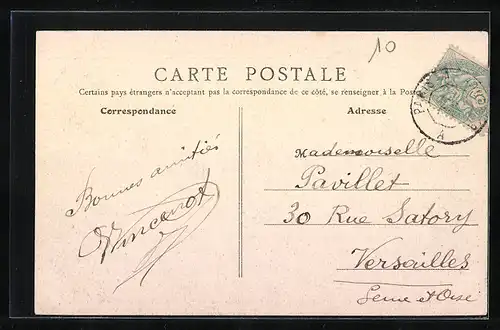 10
CARTE POSTALE
Certains pays étrangers n'acceptant pas la correspondance de ce côté, se renseigner à la Poste
Correspondance
Adresse
Bonnes amitiés
Vincenot
Mademoiselle
Pavillet
30 Rue Satory
Versailles
Seine et Oise